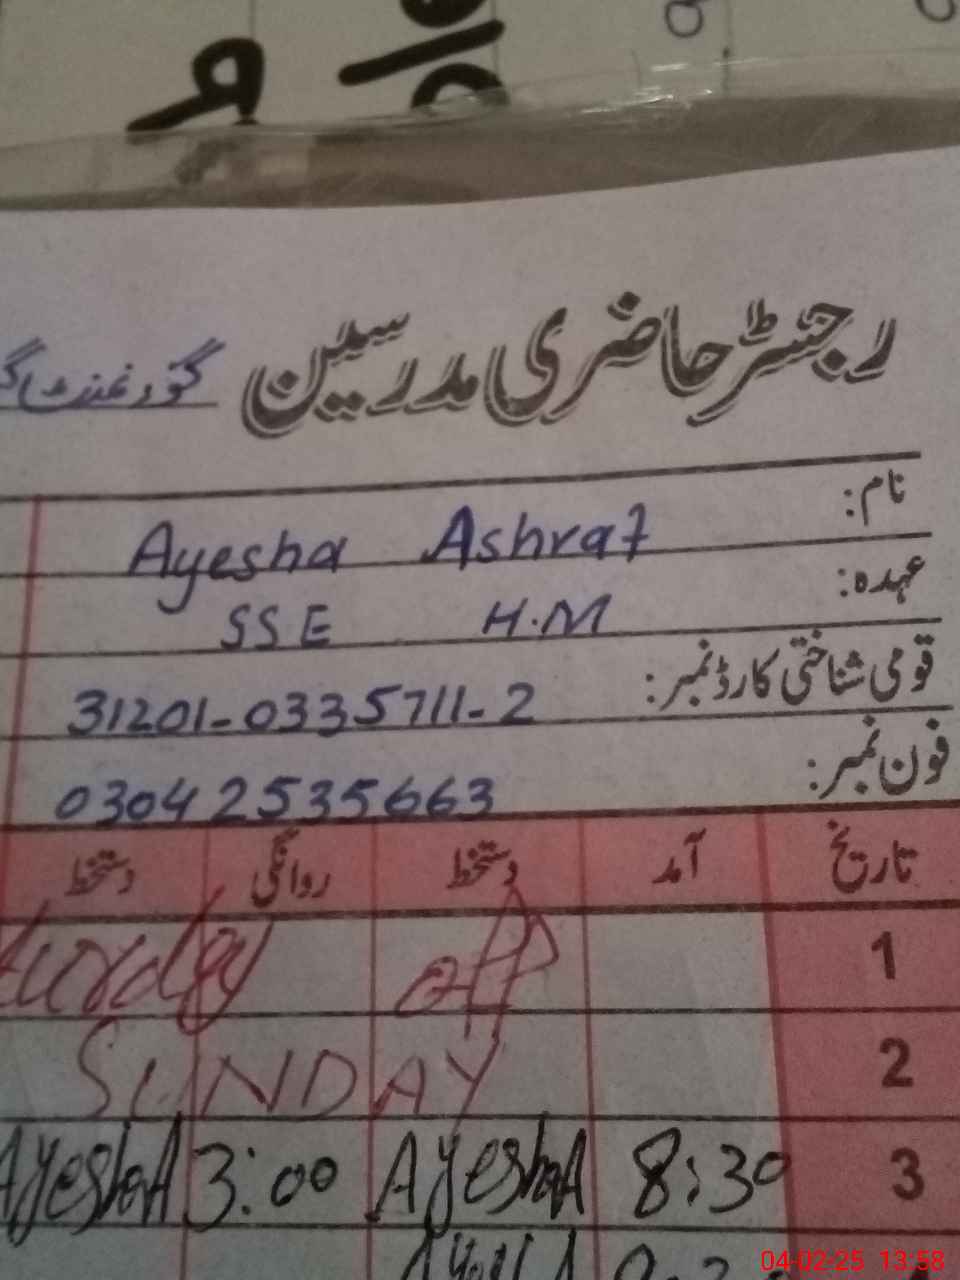 رجسٹر حاضری مدرسین گورنمنٹ
نام: Ayesha Ashraf
عہدہ: SSE H.M
قومی شناختی کارڈ نمبر: 31201-0335711-2
فون نمبر: 03042535663
تاریخ آمد دستخط روانگی دستخط
1 off
2 SUNDAY
3 8:30 AyeshA 3:00 AyeshA
04-02-25 13:58